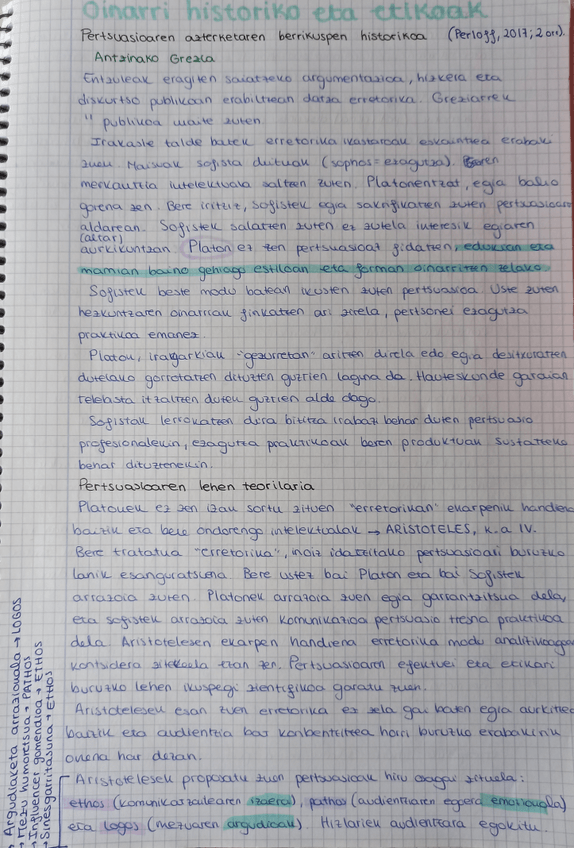 Oinarri historiko eta etikoak
Pertsuasioaren azterketaren berrikuspen historikoa (Perloff, 2017; 2011).
Antzinako Grezia
Entzuleak eragiten saiatzeko argumentazioa, hizkera eta
diskurtso publikoan erabiltzean datza erretorika. Greziarrek
" publikoa maite zuten.
Irakasle talde batek erretorika ikastaroak eskaintzea erabaki
zuen. Maisuak sofista deituak (sophos = ezagutza). Beren
merkantzia intelektuala saltzen zuten. Platonentzat, egia balio
gorena zen. Bere iritziz, sofistek egia sakrifikatzen zuten pertsuasioaren
aldarean. Sofistek salatzen zuten ez zutela interesik egiaren
(altar)
aurkikuntzan. Platon ez zen pertsuasioaz fidatzen, edukian eta
mamian baino gehiago estiloan eta forman oinarritzen zelako.
Sofistek beste modu batean ikusten zuten pertsuasioa. Uste zuten
hezkuntzaren oinarriak finkatzen ari zirela, pertsonei ezagutza
praktikoa emanez.
Platon, iragarkiak "gezurretan" aritzen direla edo egia desitxuratzen
dutelako gorrotatzen dituzten guztien laguna da. Hauteskunde garaian
telebista itzaltzen duten guztien alde dago.
Sofistak lerrokatzen dira bizitza irabazi behar duten pertsuasio
profesionalekin, ezagutza praktikoak beren produktuak sustatzeko
behar dituztenekin.
Pertsuasioaren lehen teorilaria
Platonek ez zen izan sortu zituen "erretorikan" ekarpenik handiena
baizik eta bere ondorengo intelektualak → ARISTOTELES, K.a IV.
Bere tratatua "Erretorika", inoiz idatzitako pertsuasioari buruzko
lanik esanguratsuena. Bere ustez bai Platon eta bai Sofistek
arrazoia zuten. Platonek arrazoia zuen egia garrantzitsua dela,
eta sofistek arrazoia zuten komunikazioa pertsuasio tresna praktikoa
dela. Aristotelesen ekarpen handiena erretorika modu analitikoagoan
kontsidera zitekeela izan zen. Pertsuasioaren efektuei eta etikari
buruzko lehen ikuspegi zientifikoa garatu zuen.
Aristotelesek esan zuen erretorika ez zela gai baten egia aurkitzea
baizik eta audientzia bat konbentzitzea horri buruzko erabakirik
onena har dezan.
Aristotelesek proposatu zuen pertsuasioak hiru osagai zituela:
ethos (komunikatzailearen izaera), pathos (audientziaren egoera emozionala)
eta logos (mezuaren argudioak). Hizlariek audientziara egokitu.
→ Argudiaketa arrazionala → LOGOS
→ Mezu humoretsua → PATHOS
→ Influencer gomendioa → ETHOS
→ Sinesgarritasuna → ETHOS